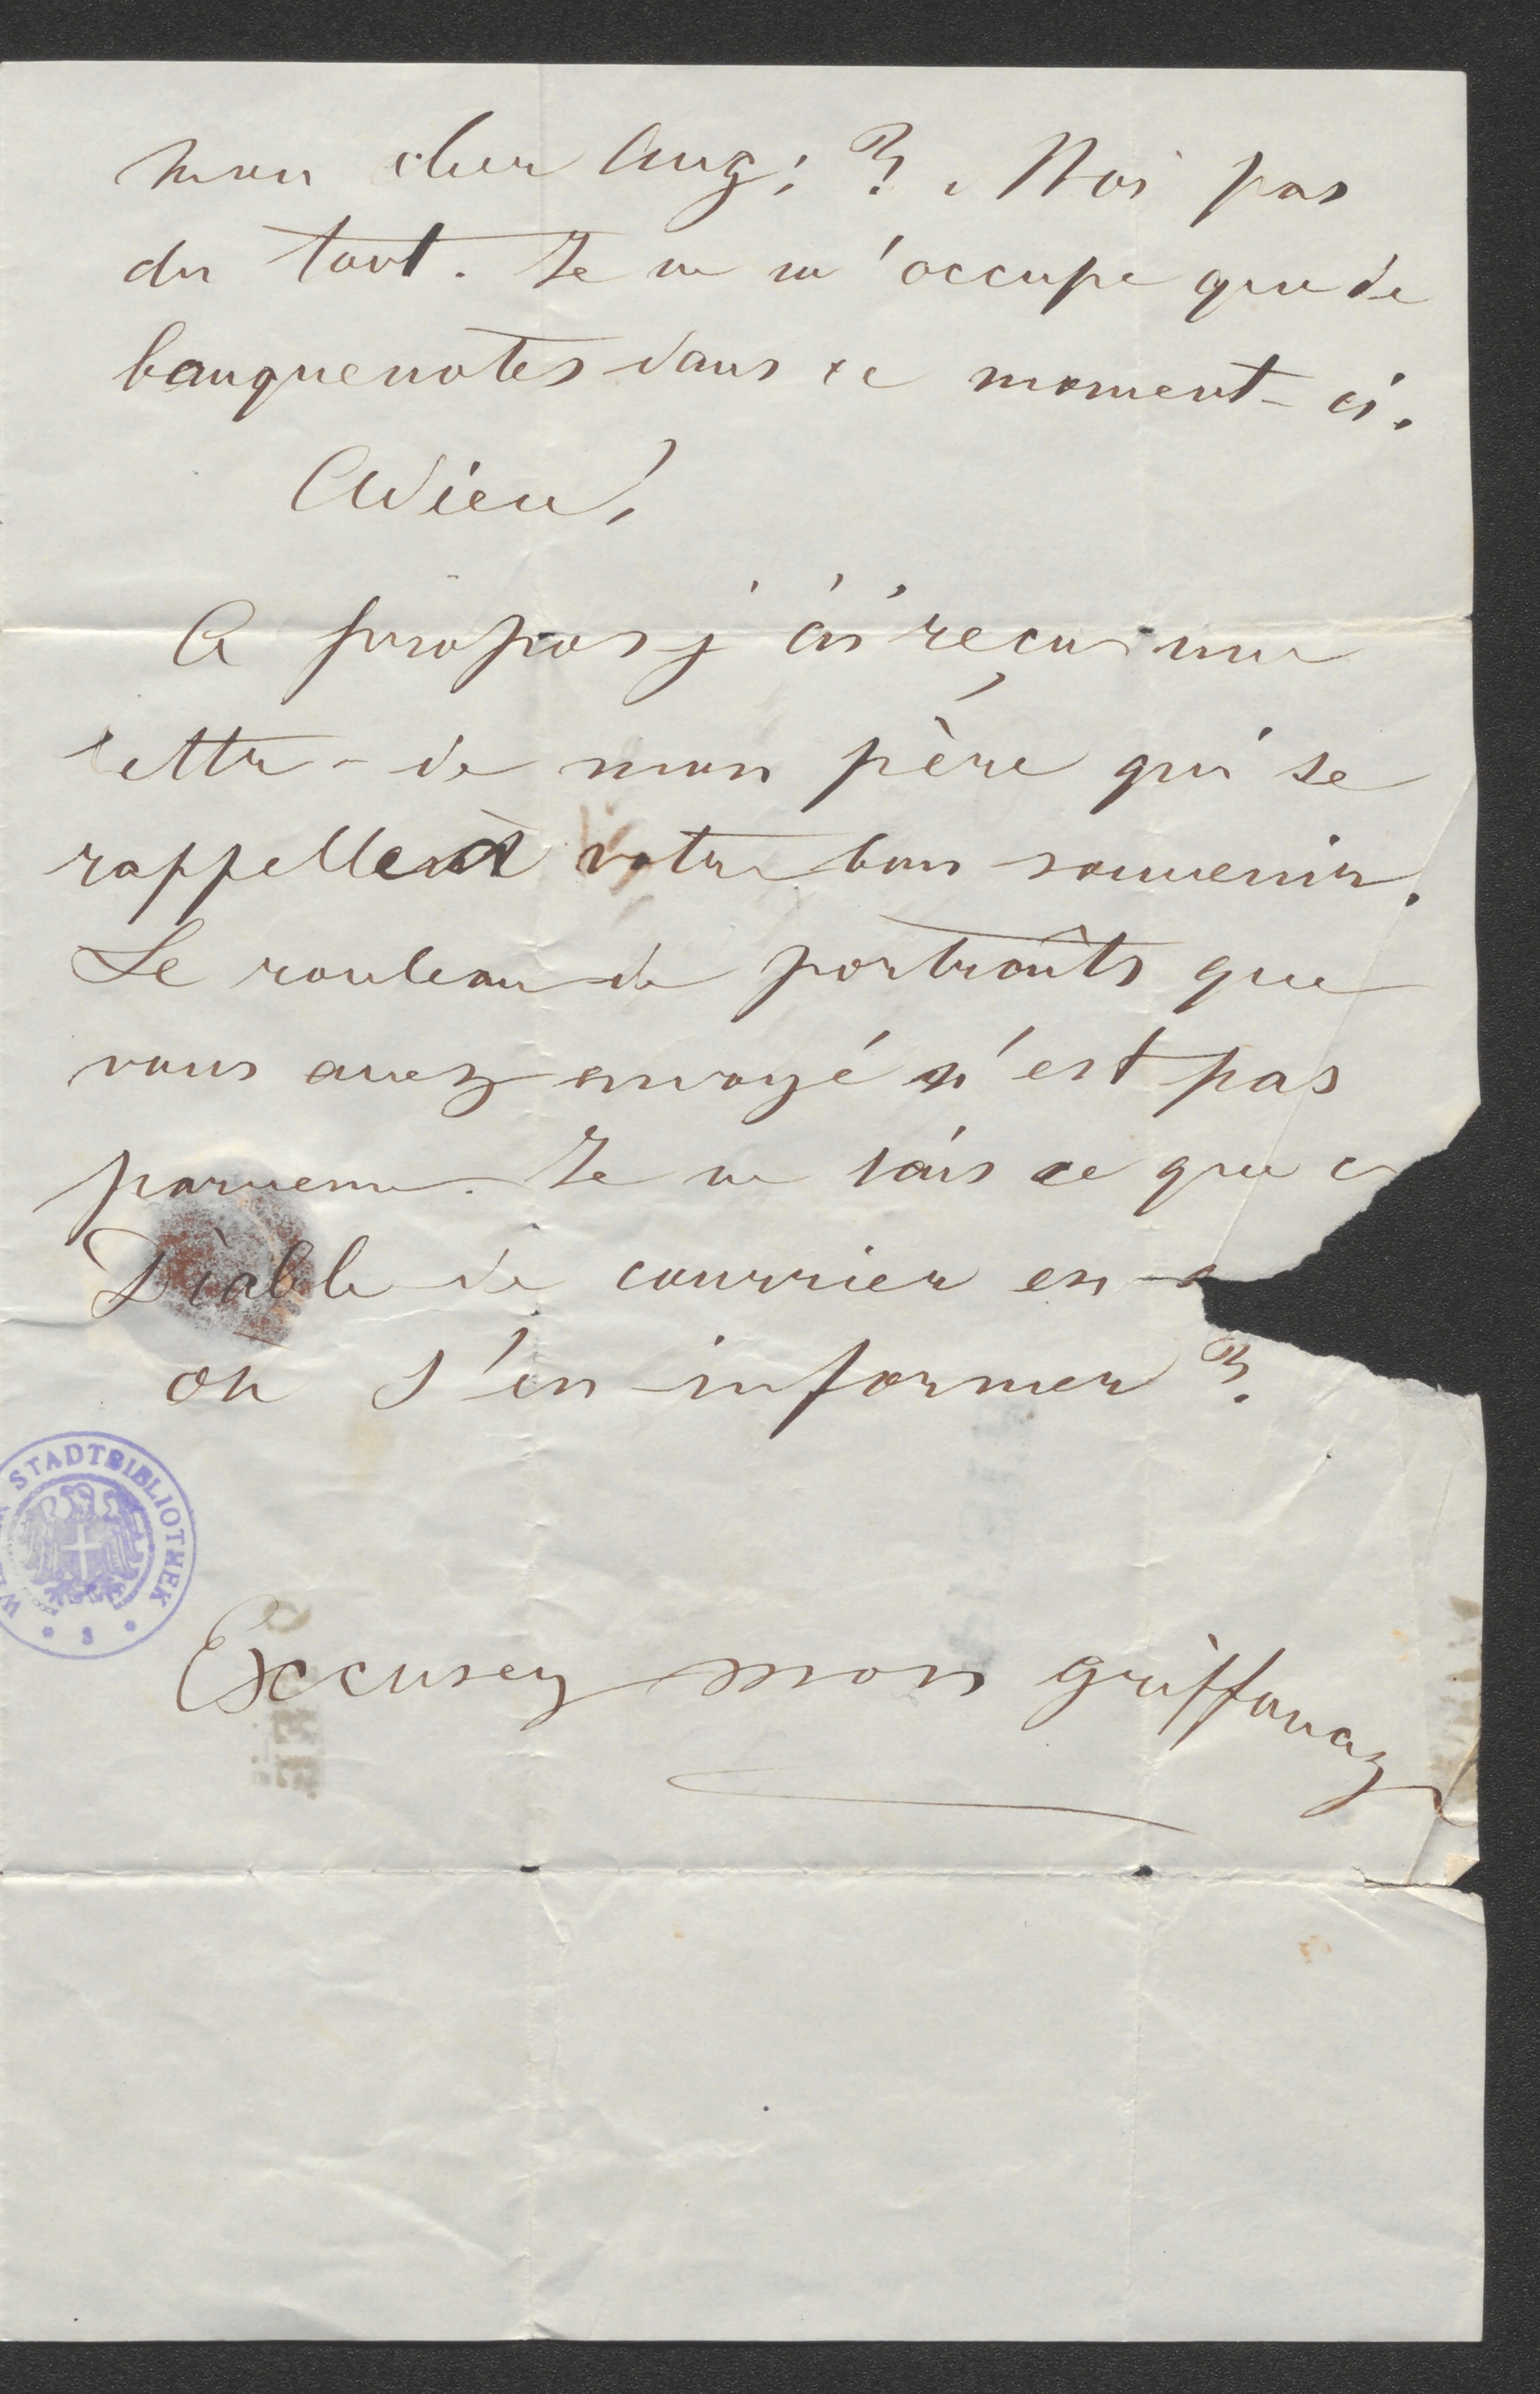 mon cher Aug: ? Moi pas
du tout. Je ne m'occupe que de
banquenotes dans ce moment-ci.
Adieu!
A propos j'ai reçu une
lettre de mon père qui se
rappelle à votre bon souvenir.
Le rouleau de portraîts que
vous avez envoyé n'est pas
parvenu. Je ne sais ce que c
Diable de courrier en a
où s'en informer ?
STADTBIBLIOTHEK
Excusez mon griffonag